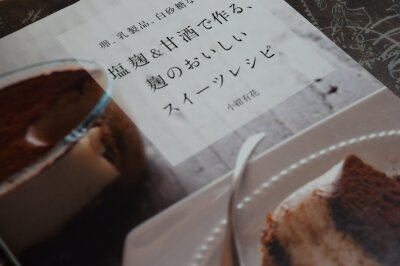 卵、乳製品、白砂糖な
塩麹&甘酒で作る、
麹のおいしい
スイーツレシピ
小紺有花